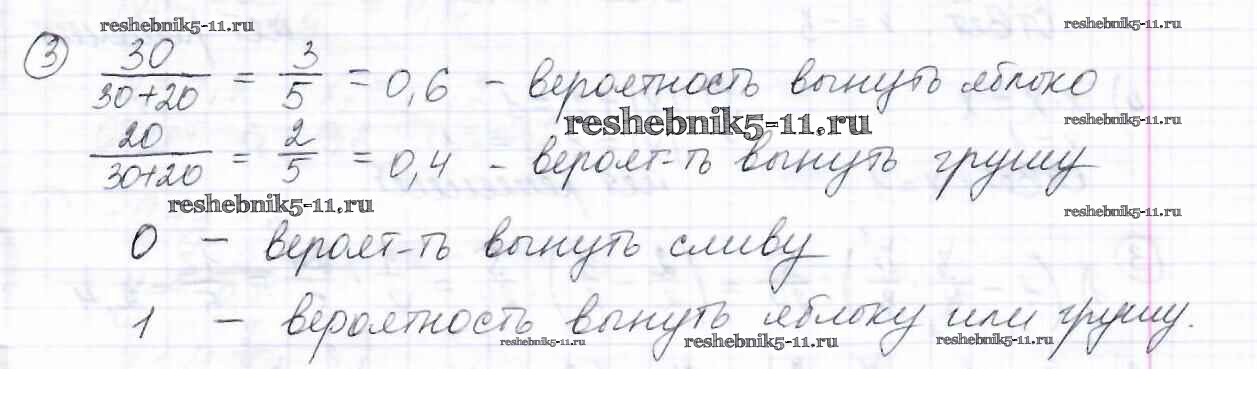 reshebnik5-11.ru reshebnik5-11.ru
③ 30/(30+20) = 3/5 = 0,6 – вероятность вынуть яблоко
reshebnik5-11.ru reshebnik5-11.ru
20/(30+20) = 2/5 = 0,4 – вероят-ть вынуть грушу
reshebnik5-11.ru reshebnik5-11.ru
0 – вероят-ть вынуть сливу
1 – вероятность вынуть яблоку или грушу.
reshebnik5-11.ru reshebnik5-11.ru reshebnik5-11.ru